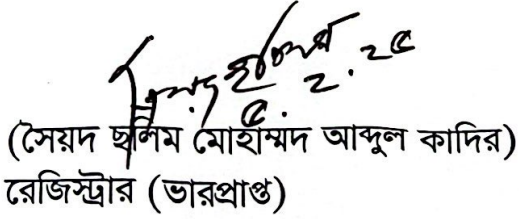 ৫.২.২৫
(সৈয়দ ছলিম মোহাম্মদ আব্দুল কাদির)
রেজিস্ট্রার (ভারপ্রাপ্ত)